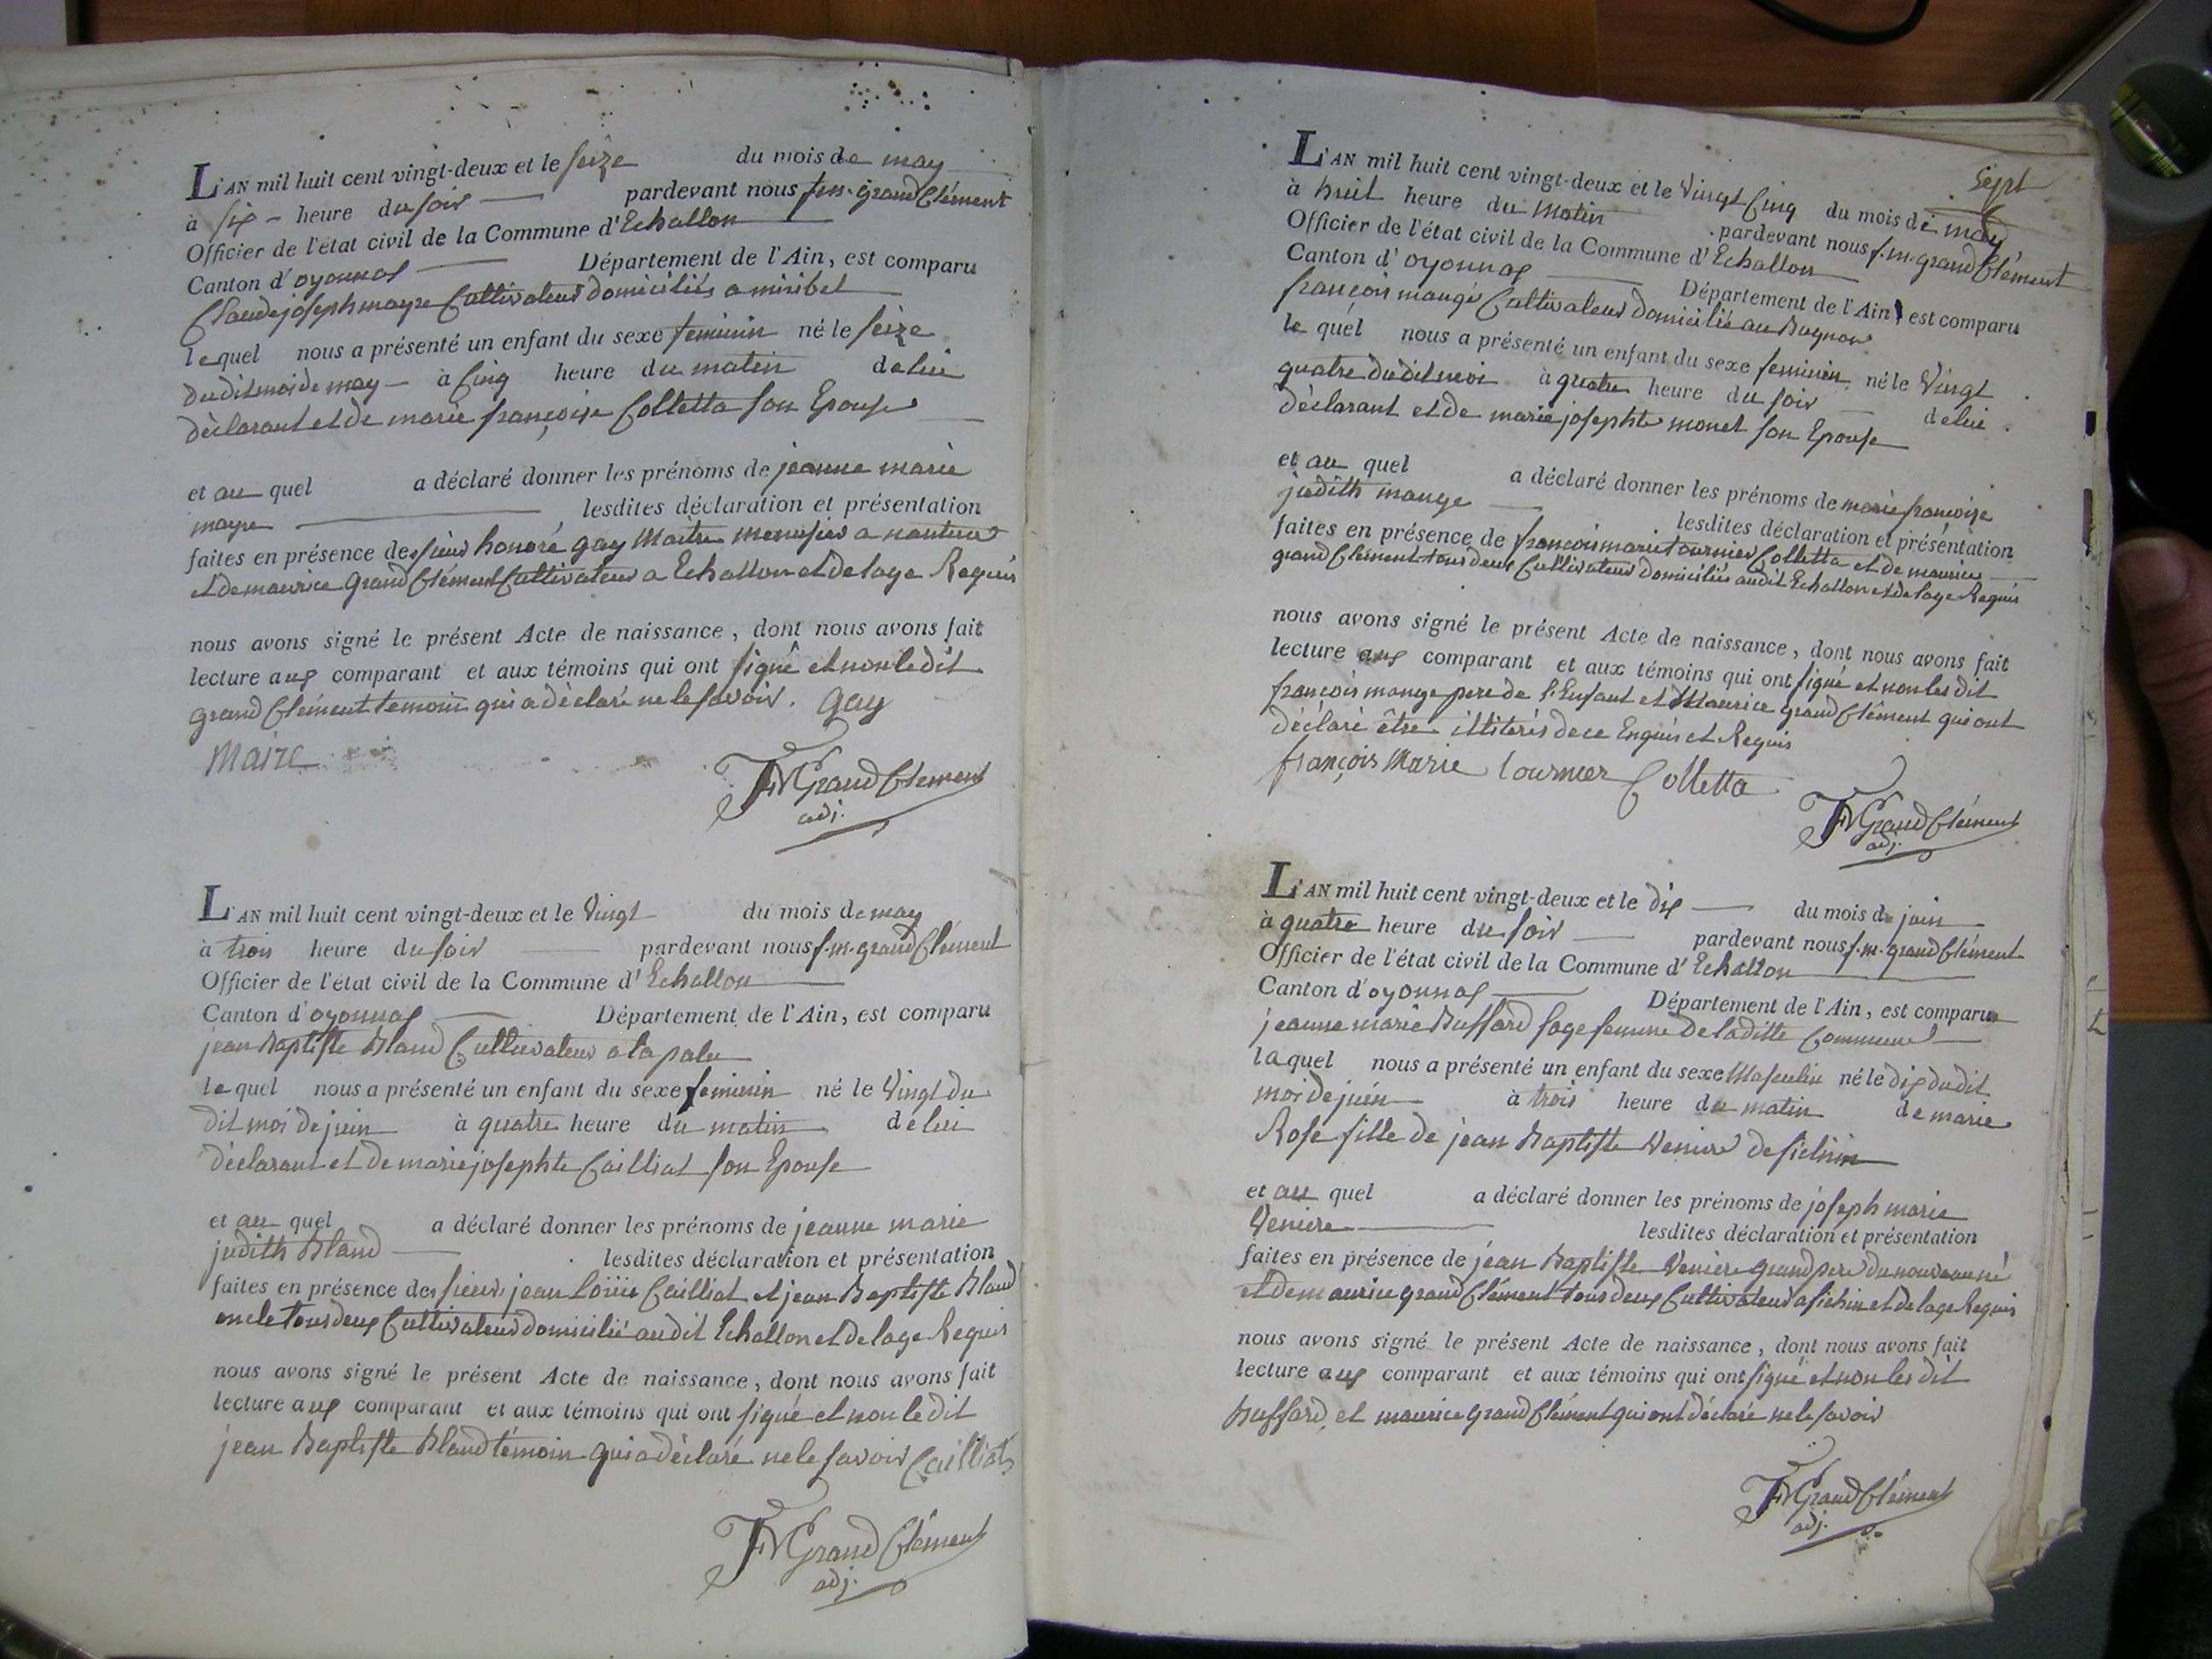 L'AN mil huit cent vingt-deux et le seize du mois de may
à six heure du soir pardevant nous f.m. grand Clément
Officier de l'état civil de la Commune d'Echallon
Canton d'oyonnax Département de l'Ain, est comparu
Claude joseph mayre Cultivateur domiciliés a miribel
lequel nous a présenté un enfant du sexe feminin né le seize
dudit moi de may à Cinq heure du matin de lui
déclarant et de marie françoise Colletta son Epouse
et au quel a déclaré donner les prénoms de jeanne marie
mayre lesdites déclaration et présentation
faites en présence des sieur honoré gay Maitre menusier a nantua
et de maurice grand Clément Cultivateur a Echallon et de lage Requis
nous avons signé le présent Acte de naissance, dont nous avons fait
lecture aux comparant et aux témoins qui ont signé et non le dit
grand Clément temoin qui a déclaré ne le savoir. gay
Maire
FMGrand Clément
adj.
L'AN mil huit cent vingt-deux et le Vingt du mois de may
à trois heure du soir pardevant nous f.m. grand Clément
Officier de l'état civil de la Commune d'Echallon
Canton d'oyonnax Département de l'Ain, est comparu
jean Baptiste Bland Cultivateur a la palu
lequel nous a présenté un enfant du sexe feminin né le Vingt du
dit moi de juin à quatre heure du matin de lui
déclarant et de marie josephte Cailliat son Epouse
et au quel a déclaré donner les prénoms de jeanne marie
judith Bland lesdites déclaration et présentation
faites en présence des sieur jean Loüis Cailliat et jean Baptiste Bland
oncle tous deux Cultivateur domicilié audit Echallon et de lage Requis
nous avons signé le présent Acte de naissance, dont nous avons fait
lecture aux comparant et aux témoins qui ont signé et non le dit
jean Baptiste Bland témoin qui a déclaré ne le savoir Cailliat
FMGrand Clément
adj.
Sept
L'AN mil huit cent vingt-deux et le Vingt Cinq du mois de may
à huit heure du Matin pardevant nous f.m. grand Clément
Officier de l'état civil de la Commune d'Echallon
Canton d'oyonnax Département de l'Ain, est comparu
françois mange Cultivateur domicilié au
le quel nous a présenté un enfant du sexe feminin né le Vingt
quatre dudit moi à quatre heure du soir de lui
déclarant et de marie josephte monet son Epouse
et au quel a déclaré donner les prénoms de marie francoise
judith mange lesdites déclaration et présentation
faites en présence de francois marie tournier Colletta et de maurice
grand Clément tous deux Cultivateur domiciliés audit Echallon et de lage Requis
nous avons signé le présent Acte de naissance, dont nous avons fait
lecture aux comparant et aux témoins qui ont signé et non les dit
françois mange pere de l'Enfant et Maurice grand Clément qui ont
déclaré être illiterés de ce Enquis et Requis
françois Marie tournier Colletta
FMGrand Clément
adj.
L'AN mil huit cent vingt-deux et le dix du mois de juin
à quatre heure du soir pardevant nous f.m. grand Clément
Officier de l'état civil de la Commune d'Echallon
Canton d'oyonnax Département de l'Ain, est comparue
jeanne marie Buffard sage femme de la ditte Commune
laquel nous a présenté un enfant du sexe Masculin né le dix dudit
moi de juin à trois heure du matin de marie
Rose fille de jean Baptiste Veniere
et au quel a déclaré donner les prénoms de joseph marie
Veniere lesdites déclaration et présentation
faites en présence de jean Baptiste Veniere grand pere du nouveau né
et de maurice grand Clément tous deux Cultivateur et de lage Requis
nous avons signé le présent Acte de naissance, dont nous avons fait
lecture aux comparant et aux témoins qui ont signé et non les dit
buffard et maurice grand Clément qui ont déclaré ne le savoir
FMGrand Clément
adj.